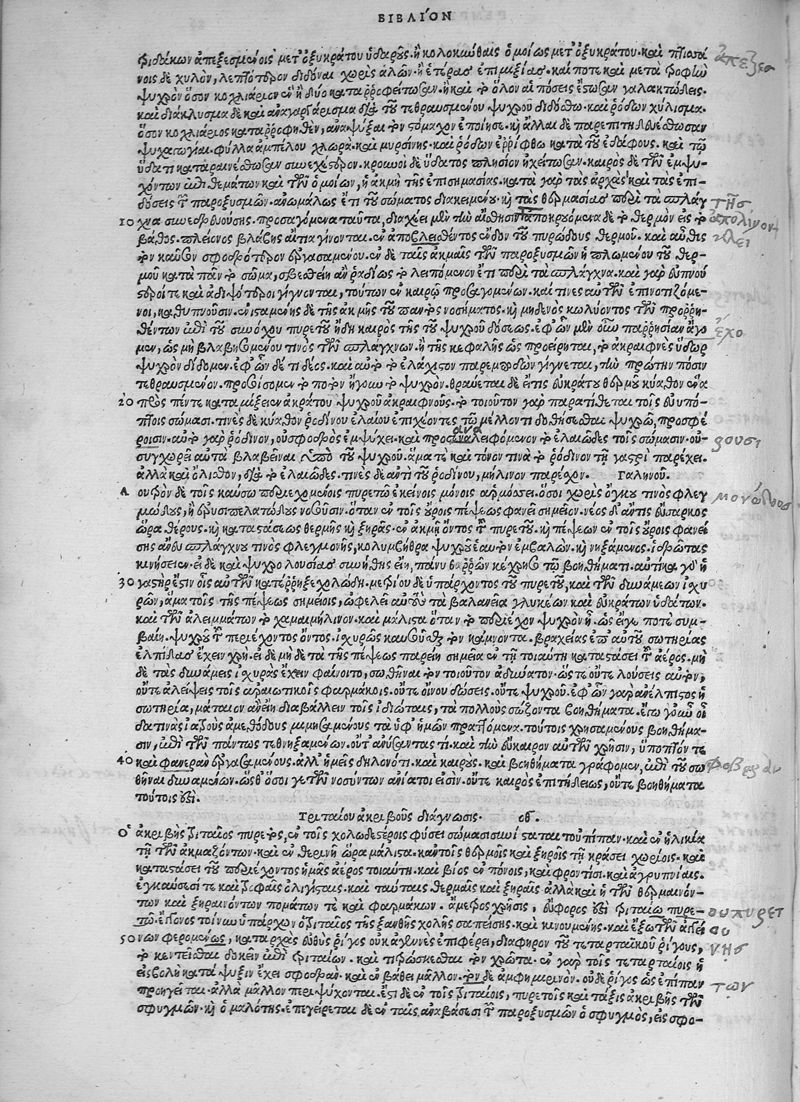 ΒΙΒΛΙΟΝ
θριδάκων ἀπεξεσμένοις μετ' ὀξυκράτου ὑδαροῦς. ἢ κολοκύνθαις ὁμοίως μετ' ὀξυκράτου. καὶ πτισσά
νοις δὲ χυλὸν, λεπτότερον διδόναι χωρὶς ἁλῶν. ἢ ἑτέρας ἐπιμιξίας. καί ποτε καὶ μετὰ ῥοφημ
ψυχρὸν ὅσον κοχλιάριον ἓν ἢ δύο καταρροφείτωσαν. ἢ καὶ τὸ ὅλον αἱ πόσεις ἔστωσαν γαλακτώδεις.
καὶ διάκλυσμα δὲ καὶ ἀναγαργάρισμα διὰ τοῦ τεθραυσμένου ψυχροῦ διδόσθω. καὶ ῥόδων χύλισμα.
ὅσον κοχλιάριον καταρροφηθὲν, ἀναψύξαι τὸν στόμαχον ἐποίησε. καὶ ἄλλαι δὲ παρεπιτηδευέσθωσαν
ψυχαγωγίαι. φύλλα ἀμπέλου χλωρὰ. καὶ μυρσίνης. καὶ ῥόδων ἐρρίφθω κατὰ τοῦ ἐδάφους. καὶ τῷ
ὕδατι καταρραινέσθωσαν συνεχέστερον. κρουνοὶ δὲ ὕδατος πλησίον ἠχείτωσαν. καιρὸς δὲ τῶν ἐμψυ-
χόντων ἐπιθεμάτων καὶ τῶν ὁμοίων, ἡ ἀκμὴ τῆς ἐπισημασίας. κατὰ γὰρ τὰς ἀρχὰς καὶ τὰς ἐπι-
δόσεις τοῦ παροξυσμοῦ. ἀνωμάλως ἔτι τοῦ σώματος διακειμένου. καὶ τῆς θερμασίας περὶ τὰ σπλάγ
10 χνα συνεδρευούσης. προσαγόμενα ταῦτα, διαχέει μὲν τὴν αἴσθησιν. ἀποκρυόμενα δὲ τὸ θερμὸν εἰς τὸ
βάθος. πλείονος βλάβης αἴτια γίνονται. ἐν ἀποκλεισθέντος ἔνδον τοῦ πυρώδους θερμοῦ. καὶ αὖθις
τὸν καῦσον σφοδρότερον ἐργασαμένου. ἐν δὲ ταῖς ἀκμαῖς τῶν παροξυσμῶν ἡπλωμένου τοῦ θερ-
μοῦ κατὰ πᾶν τὸ σῶμα, σβεσθείη ἂν ῥᾳδίως τὸ λειπόμενον ἔτι περὶ τὰ σπλάγχνα. καὶ γὰρ εὔπνου
στεροί τε καὶ ἀδιψότεροι γίγνονται, τούτων ἐν καιρῷ προσαγομένων. καί τινες αὐτῶν ἐπινοτιζόμε-
νοι, καθυπνοῦσιν. ἐνισταμένης δὲ τῆς ἀκμῆς τοῦ παντὸς νοσήματος. καὶ μηδενὸς κωλύοντος τῶν προρρη-
θέντων ἐπὶ τοῦ συνόχου πυρετοῦ ἤδη καιρὸς τῆς τοῦ ψυχροῦ δόσεως. ἐφ' ὧν μὲν οὖν παρρησίαν ἄγο
μεν, ὡς μὴ βλαβησομένου τινὸς τῶν σπλάγχνων. ἢ τῆς κεφαλῆς ὡς προείρηται, τὸ ἀκραιφνὲς ὕδωρ
ψυχρὸν δίδομεν. ἐφ' ὧν δέ τι δέος. καὶ αὐτὸ τὸ ἐλάχιστον παρεμποδὼν γίγνεται, τὴν πρώτην πόσιν
τεθραυσμένον. προοίσομεν τὸ ποτὸν ἤγουν τὸ ψυχρόν. θραύεται δὲ εἴ τις εὐκράτου θερμοῦ κύαθον ἕνα
20 πρὸς πέντε καταμίξειεν ἀκράτου ψυχροῦ ἀκραιφνοῦς. τὸ τοιοῦτον γὰρ παρατίθεται τοῖς εὐυπό-
πτοις σώμασι. τινὲς δὲ κύαθον ῥοδίνου ἐλαίου ἐπιχέοντες τῷ μέλλοντι δοθήσεσθαι ψυχρῷ, προσφέ
ρουσιν. αὐτὸ γὰρ ῥόδινον, οὐ σφοδρῶς ἐμψύχει. καὶ προσαναλειφόμενον τὸ ἐλαιῶδες τοῖς σώμασιν. οὐ-
συγχωρεῖ αὐτὰ βλαβεῖναι ὑπὸ τοῦ ψυχροῦ. ἅμα τε καὶ τόνον τινὰ τὸ ῥόδινον τῇ γαστρὶ παρέχει.
ἀλλὰ καὶ ὄλισθον, διὰ τὸ ἐλαιῶδες. τινὲς δὲ αὐτὶ τοῦ ῥοδίνου, μήλινον παρέχον. Γαληνοῦ.
Λουτρὸν δὲ τοῖς καύσῳ περιεχομένοις πυρετῷ ἐκείνοις μόνοις ἁρμόσει. ὅσοι χωρὶς ὄγκου τινὸς φλεγ
μονώδους, ἢ ἐρυσιπελατώδους νοσοῦσιν. ὅταν ἐν τοῖς οὔροις πέψεως φανεῖ σημεῖον. νέος δ' ἄν τις εὔσαρκος
ὥρᾳ θέρους. καὶ καταστάσεως θερμῆς καὶ ξηρᾶς. ἐν ἀκμῇ ὄντος τοῦ πυρετοῦ. καὶ πέψεων ἐν τοῖς οὔροις φανεί
σης ἄνευ σπλάγχνου τινὸς φλεγμονῆς, κολυμβήθρᾳ ψυχροῦ ἑαυτὸν ἐμβαλὼν. καὶ νηξάμενος. ἱδρῶτας
κινήσειεν. εἰ δὲ καὶ ψυχρολουσίας συνήθης εἴη, πάνυ θαρρῶν κέχρησο τῷ βοηθήματι. αὐτίκα γὰρ ἡ
30 γαστὴρ ἔστιν οἷς αὐτῶν κατέρρηξε χολώδη. μετρίου δὲ ὑπάρχοντος τοῦ πυρετοῦ, καὶ τῶν δυνάμεων ἰσχυ
ρῶν, ἅμα τοῖς τῆς πέψεως σημείοις, ὠφελεῖ αὐτοὺς τὰ βαλανεῖα γλυκέων καὶ εὐκράτων ὑδάτων.
καὶ τῶν ἀλειμμάτων τὸ χαμαιμήλινον. καὶ μάλιστα ὅταν τὸ περιέχον ψυχρὸν ᾖ. ὡς εἴγε ποτε συμ-
βαίη. ψυχροῦ τοῦ περιέχοντος ὄντος. ἰσχυρῶς καυσοῦσθαι τὸν κάμνοντα. βραχείας ἐπ' αὐτοῦ σωτηρίας
ἐλπίδας ἔχειν χρή. εἰ δὲ μὴ δὲ τὰ τῆς πέψεως παρείη σημεῖα ἐν τῇ τοιαύτῃ καταστάσει τοῦ ἀέρος. μὴ
δὲ τὰς δυνάμεις ἰσχυρὰς ἔχειν φαίνοιτο, σωθῆναι τὸν τοιοῦτον ἀδύνατον. ὥστε οὔτε λούσεις αὐτὸν,
οὔτε ἀλείψεις τοῖς ἀρωματικοῖς φαρμάκοις. οὔτε οἴνου δώσεις. οὔτε ψυχροῦ. ἐφ' ὧν γὰρ ἀνέλπιστος ἡ
σωτηρία, μάταιον ἂν εἴη διαβάλλειν τοῖς ἰδιώταις, τὰ πολλοὺς σώζοντα βοηθήματα. ἔγωγ' οὖν οἶ
δα τινὰς ἰατροὺς ἀμεθόδους μιμησαμένους τὰ ὑφ' ἡμῶν πραττόμενα. τούτοις χρησαμένους βοηθήμα-
σιν, ἐπὶ τῶν πάντως τεθνηξομένων. οὔτ' ἀνύσαντάς τι. καὶ τὴν εὔκαιρον αὐτῶν χρῆσιν, ὕποπτόν τε
40 καὶ φανερὰν ἐργασαμένους. ἀλλ' ἡμεῖς δηλονότι. καὶ καιροὺς. καὶ βοηθήματα γράφομεν, ἐπὶ τοῦ σω
θῆναι δυναμένων. ὥσθ' ὅσοι γε τῶν νοσούντων ἀνίατοι εἰσὶν. οὔτε καιρὸς ἐπιτήδειος, οὔτε βοηθήματα
τούτοις ἐστί.
Τριταίου ἀκριβοῦς διάγνωσις.
Ὁ ἀκριβὴς τριταῖος πυρετὸς, ἐν τοῖς χολωδεστέροις φύσει σώμασι συνίσταται τοὐπίπαν. καὶ ἐν ἡλικίᾳ
τῇ τῶν ἀκμαζόντων. καὶ ἐν θερινῇ ὥρᾳ μάλιστα. καὶ τοῖς θερμοῖς καὶ ξηροῖς τῇ κράσει χωρίοις. καὶ
καταστάσει τοῦ περιέχοντος ἡμᾶς ἀέρος τοιαύτῃ. καὶ βίος ἐν πόνοις, καὶ φροντίσι. καὶ ἀγρυπνίαις.
ἐγκαύσεσί τε καὶ τροφαῖς ὀλιγίσταις. καὶ ταύταις θερμαῖς καὶ ξηραῖς ἀλλὰ καὶ ἡ τῶν θερμαινόν-
των καὶ ξηραινόντων πομάτων τε καὶ φαρμάκων. ἄμετρος χρῆσις, εὔφορος ἐστὶ τριταίῳ πυρε-
τῷ. ἔκγονος τοίνυν ὑπάρχων ὁ τριταῖος τῆς ξανθῆς χολῆς σαπείσης. καὶ κινουμένης. καὶ ἔξω τῶν ἀγγεί
50 νων φερομένως, κατ' ἀρχὰς εὐθὺς ῥῖγος οὐκ ἀγεννὲς ἐπιφέρει, διαφέρον τοῦ τεταρταϊκοῦ ῥίγους,
τὸ κεντεῖσθαι δοκεῖν ἐπὶ τριταίων. καὶ τιτρώσκεσθαι τὸν χρῶτα. ἐν γὰρ τοῖς τεταρταίοις ἡ
εἰσβολὴ κατάψυξιν ἔχει σφοδρὰν. καὶ ἐν βάθει μᾶλλον. τὸν δὲ ἀμφημερινὸν. οὐδὲ ῥῖγος ὡς ἐπίπαν
προηγεῖται. ἀλλὰ μᾶλλον περιψύχονται. ἔστι δὲ ἐν τοῖς τριταίοις, πυρετοῖς καὶ τάξις ἀκριβὴς τῶν
σφυγμῶν. καὶ ὁμαλότης. ἐπεγείρεται δὲ ἐν ταῖς ἀναβάσεσι τοῦ παροξυσμῶν ὁ σφυγμὸς, εἰς σφο-
ἀπεζεσ
τῆς
ἔχο
ουσι
μονώδους
φοβεραν
νης
των